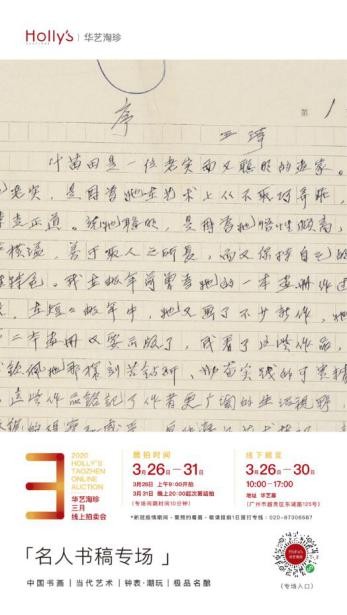 Holly's 华艺淘珍
第 1
序
王琦
叶苗田是一位老实而又聪明的画家。
老实，是因为她在艺术上从不取巧弄
走正道。说她聪明，是因为她悟性颇高，
善于取人之所长，而又保持自己的
特色。我在数年前曾为她的一本画册作过
在短短数年中，她又画了不少新作，
二本画册又要出版了，我看了这些作品，
钦佩她那样刻苦钻研，
这些作品铭记了作者更广阔的生活视野，
2020
HOLLY'S
TAOZHEN
ONLINE
AUCTION
华艺淘珍
三月
线上拍卖会
竞拍时间
3月26日—31日
3月26日 上午9:00开拍
3月31日 晚上20:00起次第结拍
（专场间隔时间10分钟）
线下展览
3月26日—30日
10:00—17:00
地址 华艺廊
（广州市越秀区东湖路125号）
*新冠疫情期间，需预约看展，敬请提前1日拨打专线：020-87306687
「名人书稿专场」
中国书画｜当代艺术｜钟表·潮玩｜极品名酿
Holly's
（专场入口）